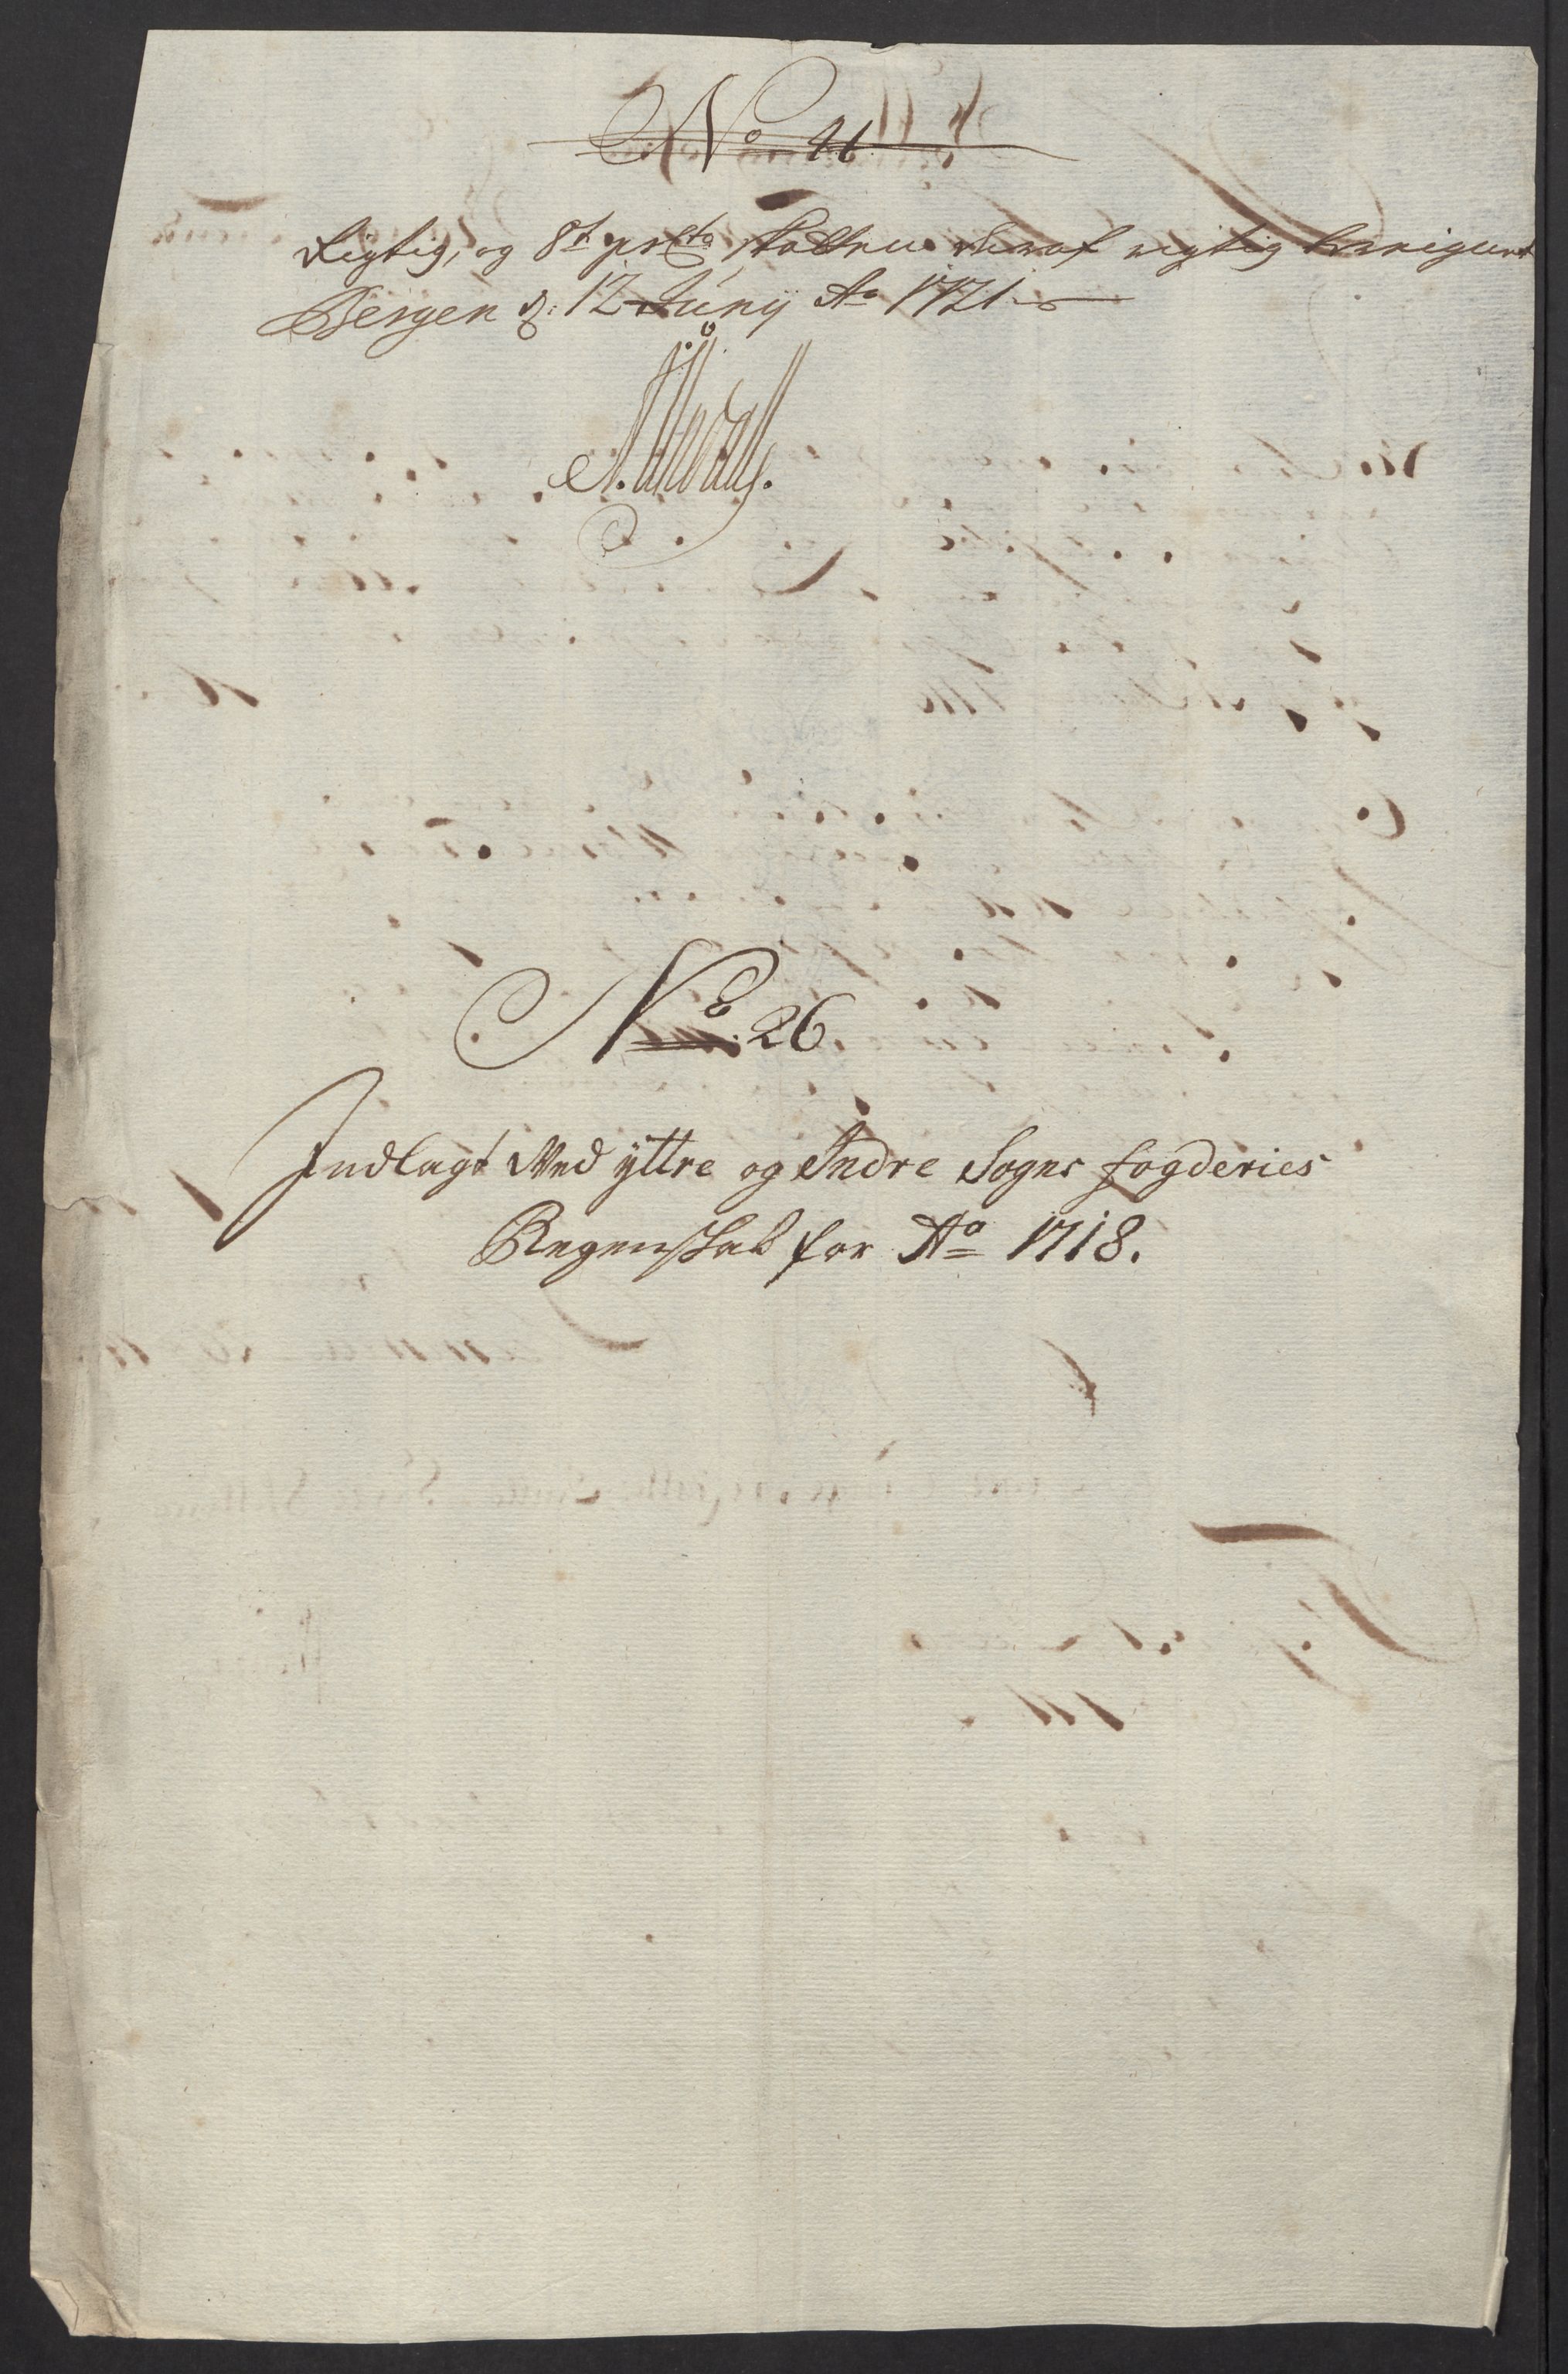 No 26
Rigtig, og 8t prCto Skatten deraf rigtig beregnet
Bergen d: 12 Junij Ao 1721
No 26
Indlagt Med yttre og Indre Sogns fogderies
Regenskab for Ao 1718.